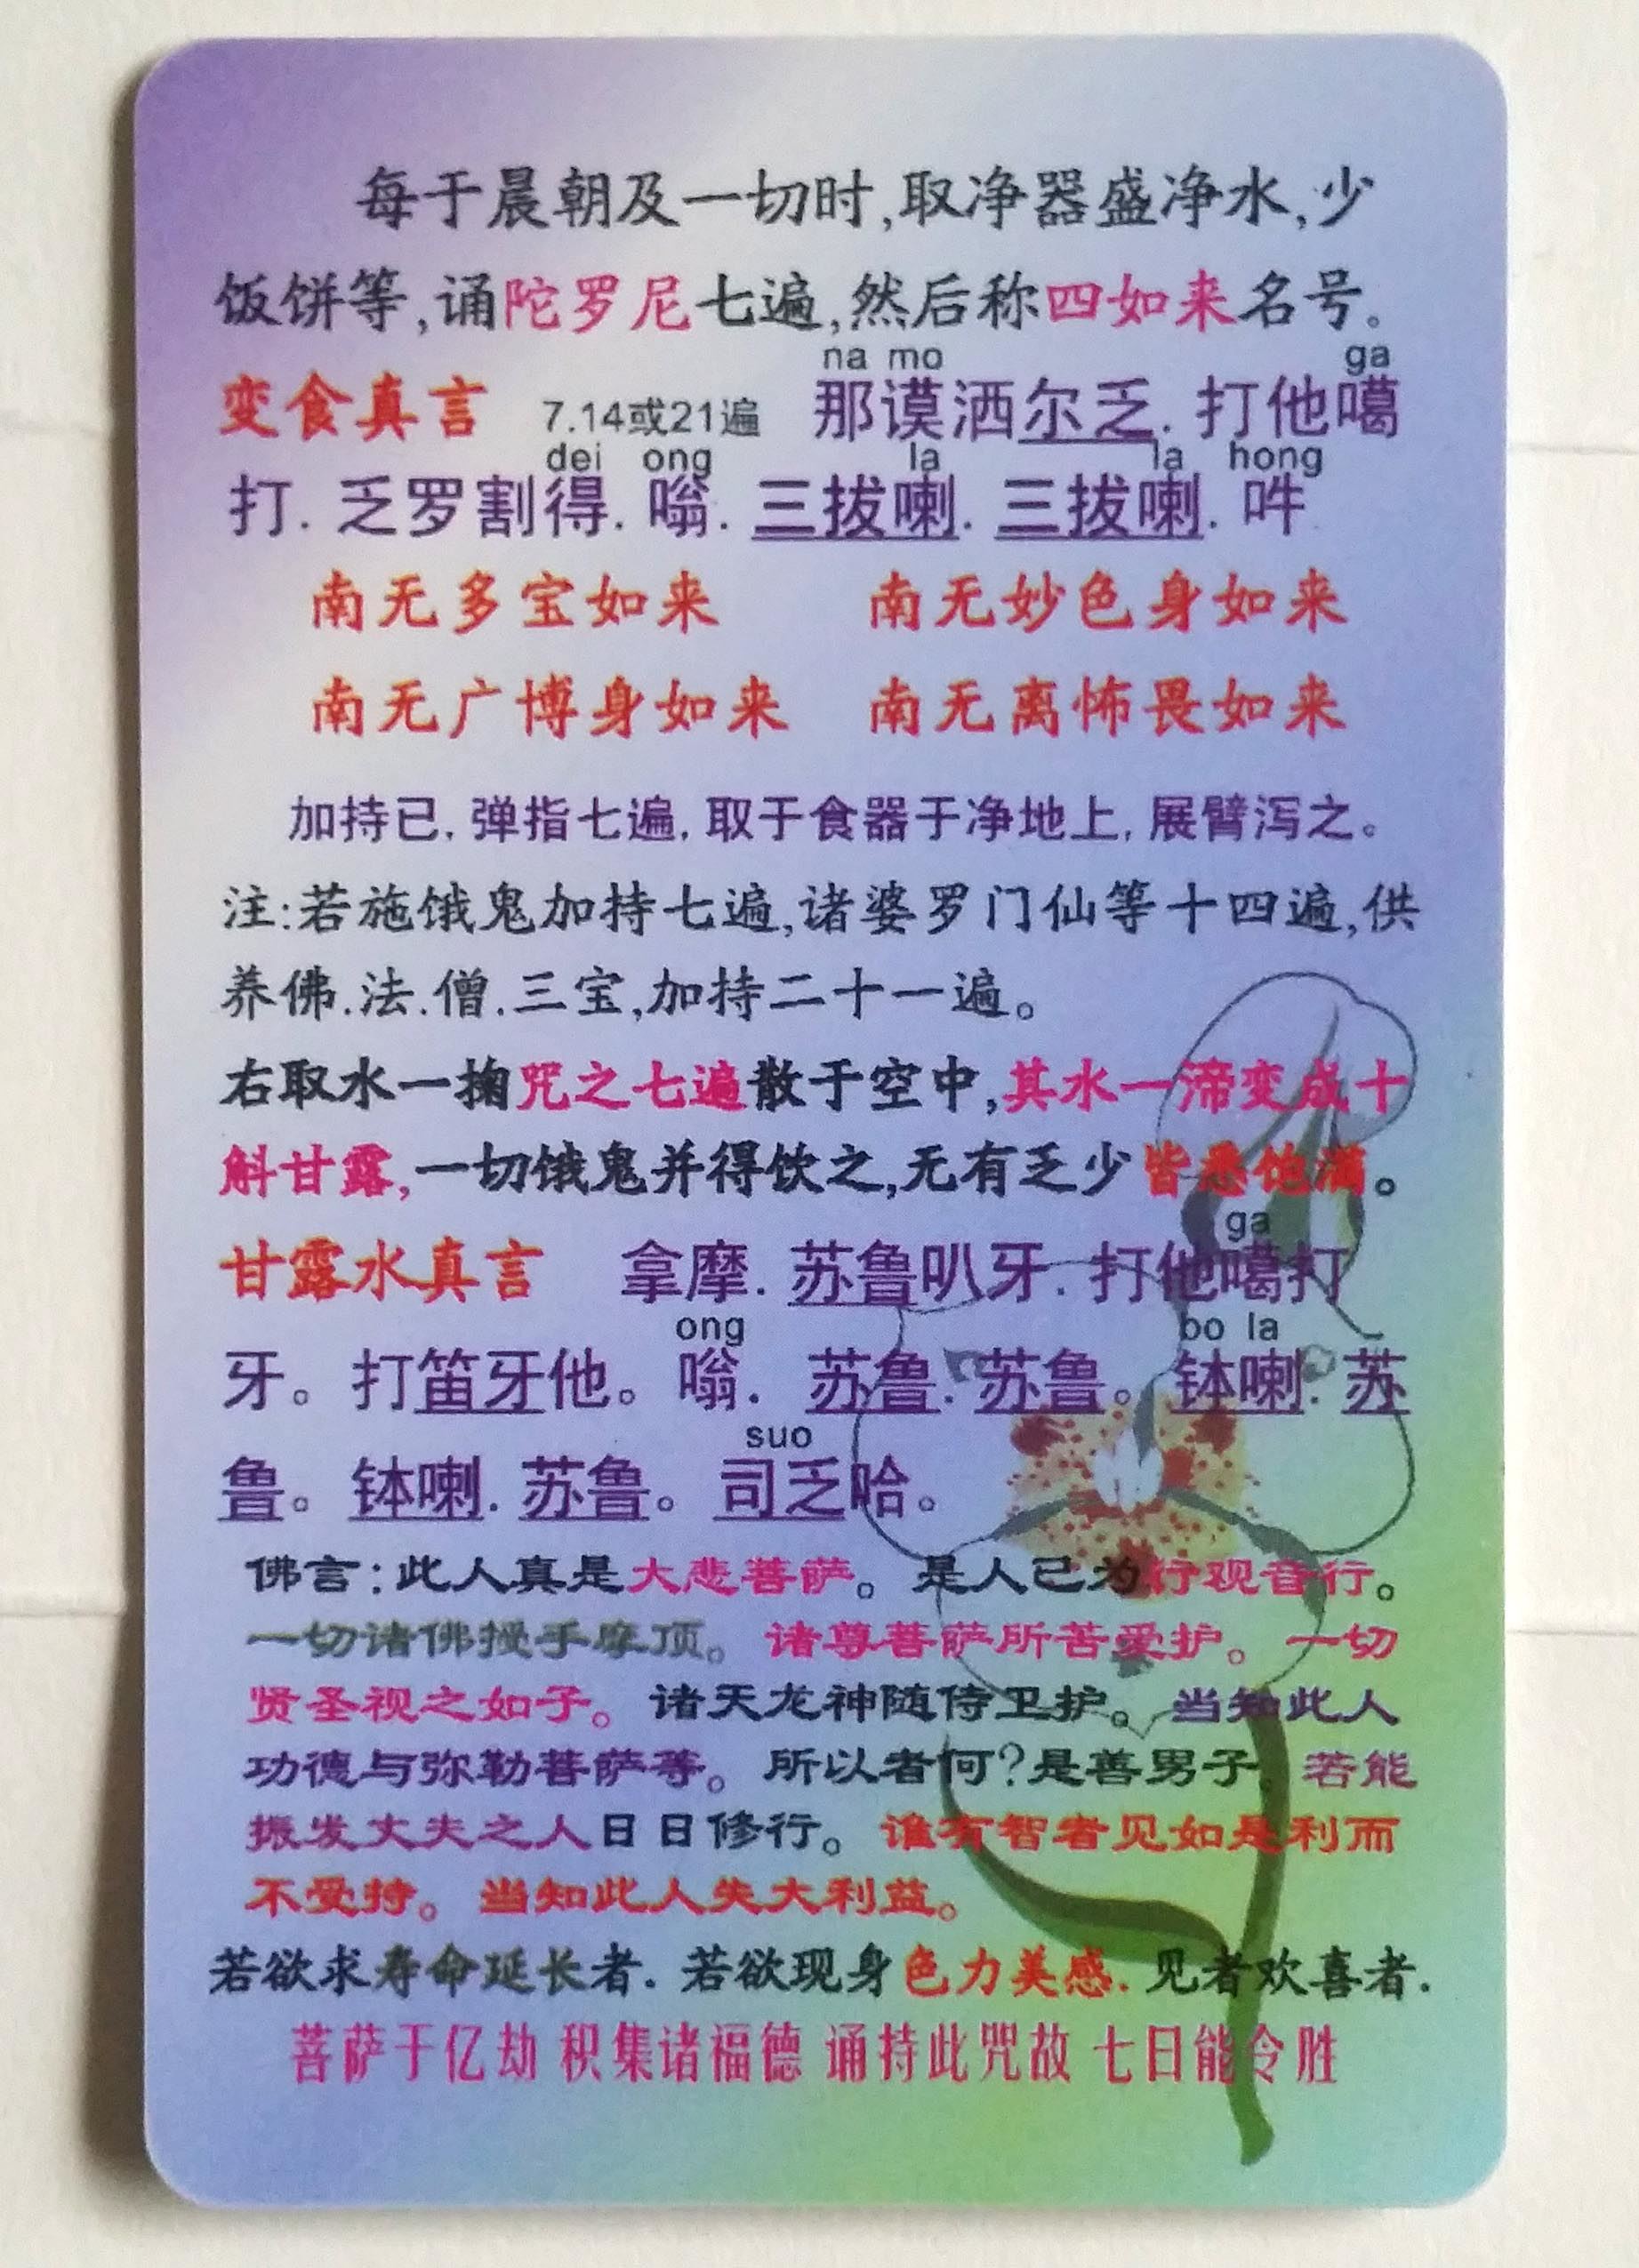 每于晨朝及一切时,取净器盛净水,少
饭饼等,诵陀罗尼七遍,然后称四如来名号。
na mo ga
变食真言 7.14或21遍 那谟洒尔乏. 打他噶
dei ong la la hong
打. 乏罗割得. 嗡. 三拔喇. 三拔喇. 吽
南无多宝如来 南无妙色身如来
南无广博身如来 南无离怖畏如来
加持已, 弹指七遍, 取于食器于净地上, 展臂泻之。
注:若施饿鬼加持七遍,诸婆罗门仙等十四遍,供
养佛.法.僧.三宝,加持二十一遍。
右取水一掬咒之七遍散于空中,其水一渧变成十
斛甘露,一切饿鬼并得饮之,无有乏少皆悉饱满。
ga
甘露水真言 拿摩. 苏鲁叭牙. 打他噶打
ong bo la
牙。打笛牙他。嗡. 苏鲁. 苏鲁。钵喇. 苏
suo
鲁。钵喇. 苏鲁。司乏哈。
佛言:此人真是大悲菩萨。是人已为行观音行。
一切诸佛授手摩顶。诸尊菩萨所苦爱护。一切
贤圣视之如子。诸天龙神随侍卫护。当知此人
功德与弥勒菩萨等。所以者何?是善男子. 若能
振发丈夫之人日日修行。谁有智者见如是利而
不受持。当知此人失大利益。
若欲求寿命延长者. 若欲现身色力美感. 见者欢喜者.
菩萨于亿劫 积集诸福德 诵持此咒故 七日能令胜